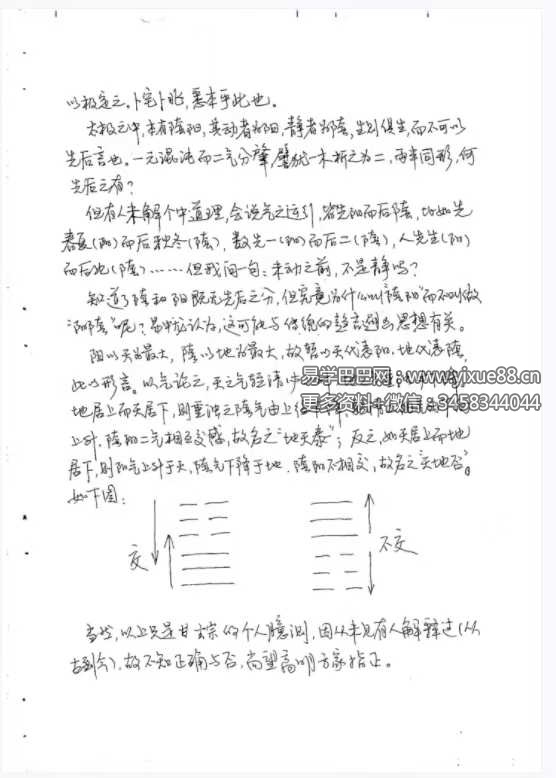 以极定之。卜宅卜兆，悉本乎此也。
太极之中，本有陰阳，其动者为阳，静者为陰，生则俱生，而不可以
先后言也。一元混沌而二气分肇，譬犹一木析之为二，两半同形，何
先后之有？
但有人未解个中道理，会说气之运行，皆先阳而后陰，比如先
春夏(阳)而后秋冬(陰)，数先一(阳)而后二(陰)，人先生(阳)
而后死(陰)……但我问一句：未动之前，不是静吗？
知道了陰和阳既无先后之分，但究竟为什么叫"陰阳"而不叫做
"阳陰"呢？ 认为，这可能与传统的 思想有关。
阳以天为最大，陰以地为最大，故暂以天代表阳，地代表陰，
此以形言。以气论之，天之气轻清
地居上而天居下，则重浊之陰气由上
上升，陰阳二气相互交感，故名之"地天泰"；反之，如天居上而地
居下，则阳气上升于天，陰气下降于地，陰阳不相交，故名之"天地否"。
如下图：
易学巴巴网：www.yixue88.cn
更多资料+微信：3458344044
交
不交
当然，以上只是甘玄宗的个人臆测，因从未见有人解释过(从
古到今)，故不知正确与否，尚望高明方家指正。